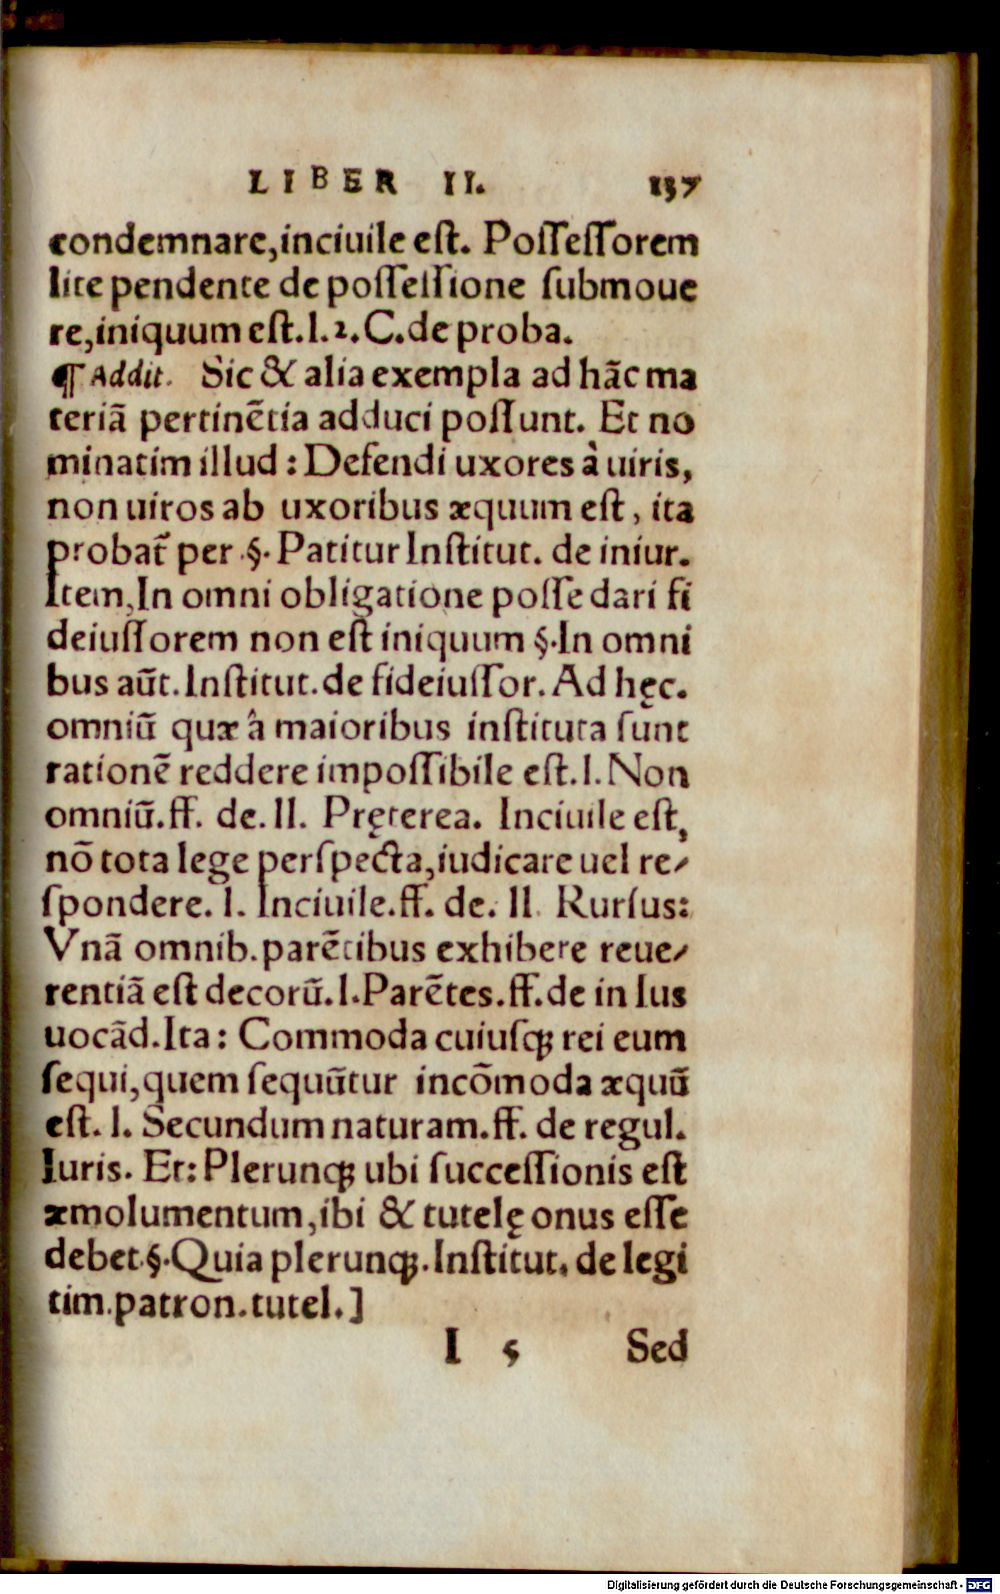 LIBER II. 137
condemnare,inciuile eſt. Poſſeſſorem
lite pendente de poſſeſſione ſubmoue
re,iniquum eſt.l.2.C.de proba.
¶ Addit. Sic & alia exempla ad hãc ma
teriã pertinẽtia adduci poſſunt. Et no
minatim illud : Defendi uxores à uiris,
non uiros ab uxoribus æquum eſt, ita
probat᷑ per §. Patitur Inſtitut. de iniur.
Item,In omni obligatione poſſe dari fi
deiuſſorem non eſt iniquum §.In omni
bus aũt.Inſtitut.de fideiuſſor. Ad hęc.
omniũ quæ â maioribus inſtituta ſunt
rationẽ reddere impoſſibile eſt.l. Non
omniũ.ff. de. ll. Pręterea. Inciuile eſt,
nõ tota lege perſpecta,iudicare uel re⸗
ſpondere. l. Inciuile.ff. de. ll. Rurſus:
Vnã omnib.parẽtibus exhibere reue⸗
rentiã eſt decorũ.l.Parẽtes.ff.de in Ius
uocãd.Ita : Commoda cuiuſqꝫ rei eum
ſequi,quem ſequũtur incõmoda æquũ
eſt. l. Secundum naturam.ff. de regul.
Iuris. Et: Plerunqꝫ ubi ſucceſſionis eſt
æmolumentum,ibi & tutelę onus eſſe
debet.§.Quia plerunqꝫ.Inſtitut. de legi
tim.patron.tutel.]
I 5 Sed
Digitalisierung gefördert durch die Deutsche Forschungsgemeinschaft - DFG